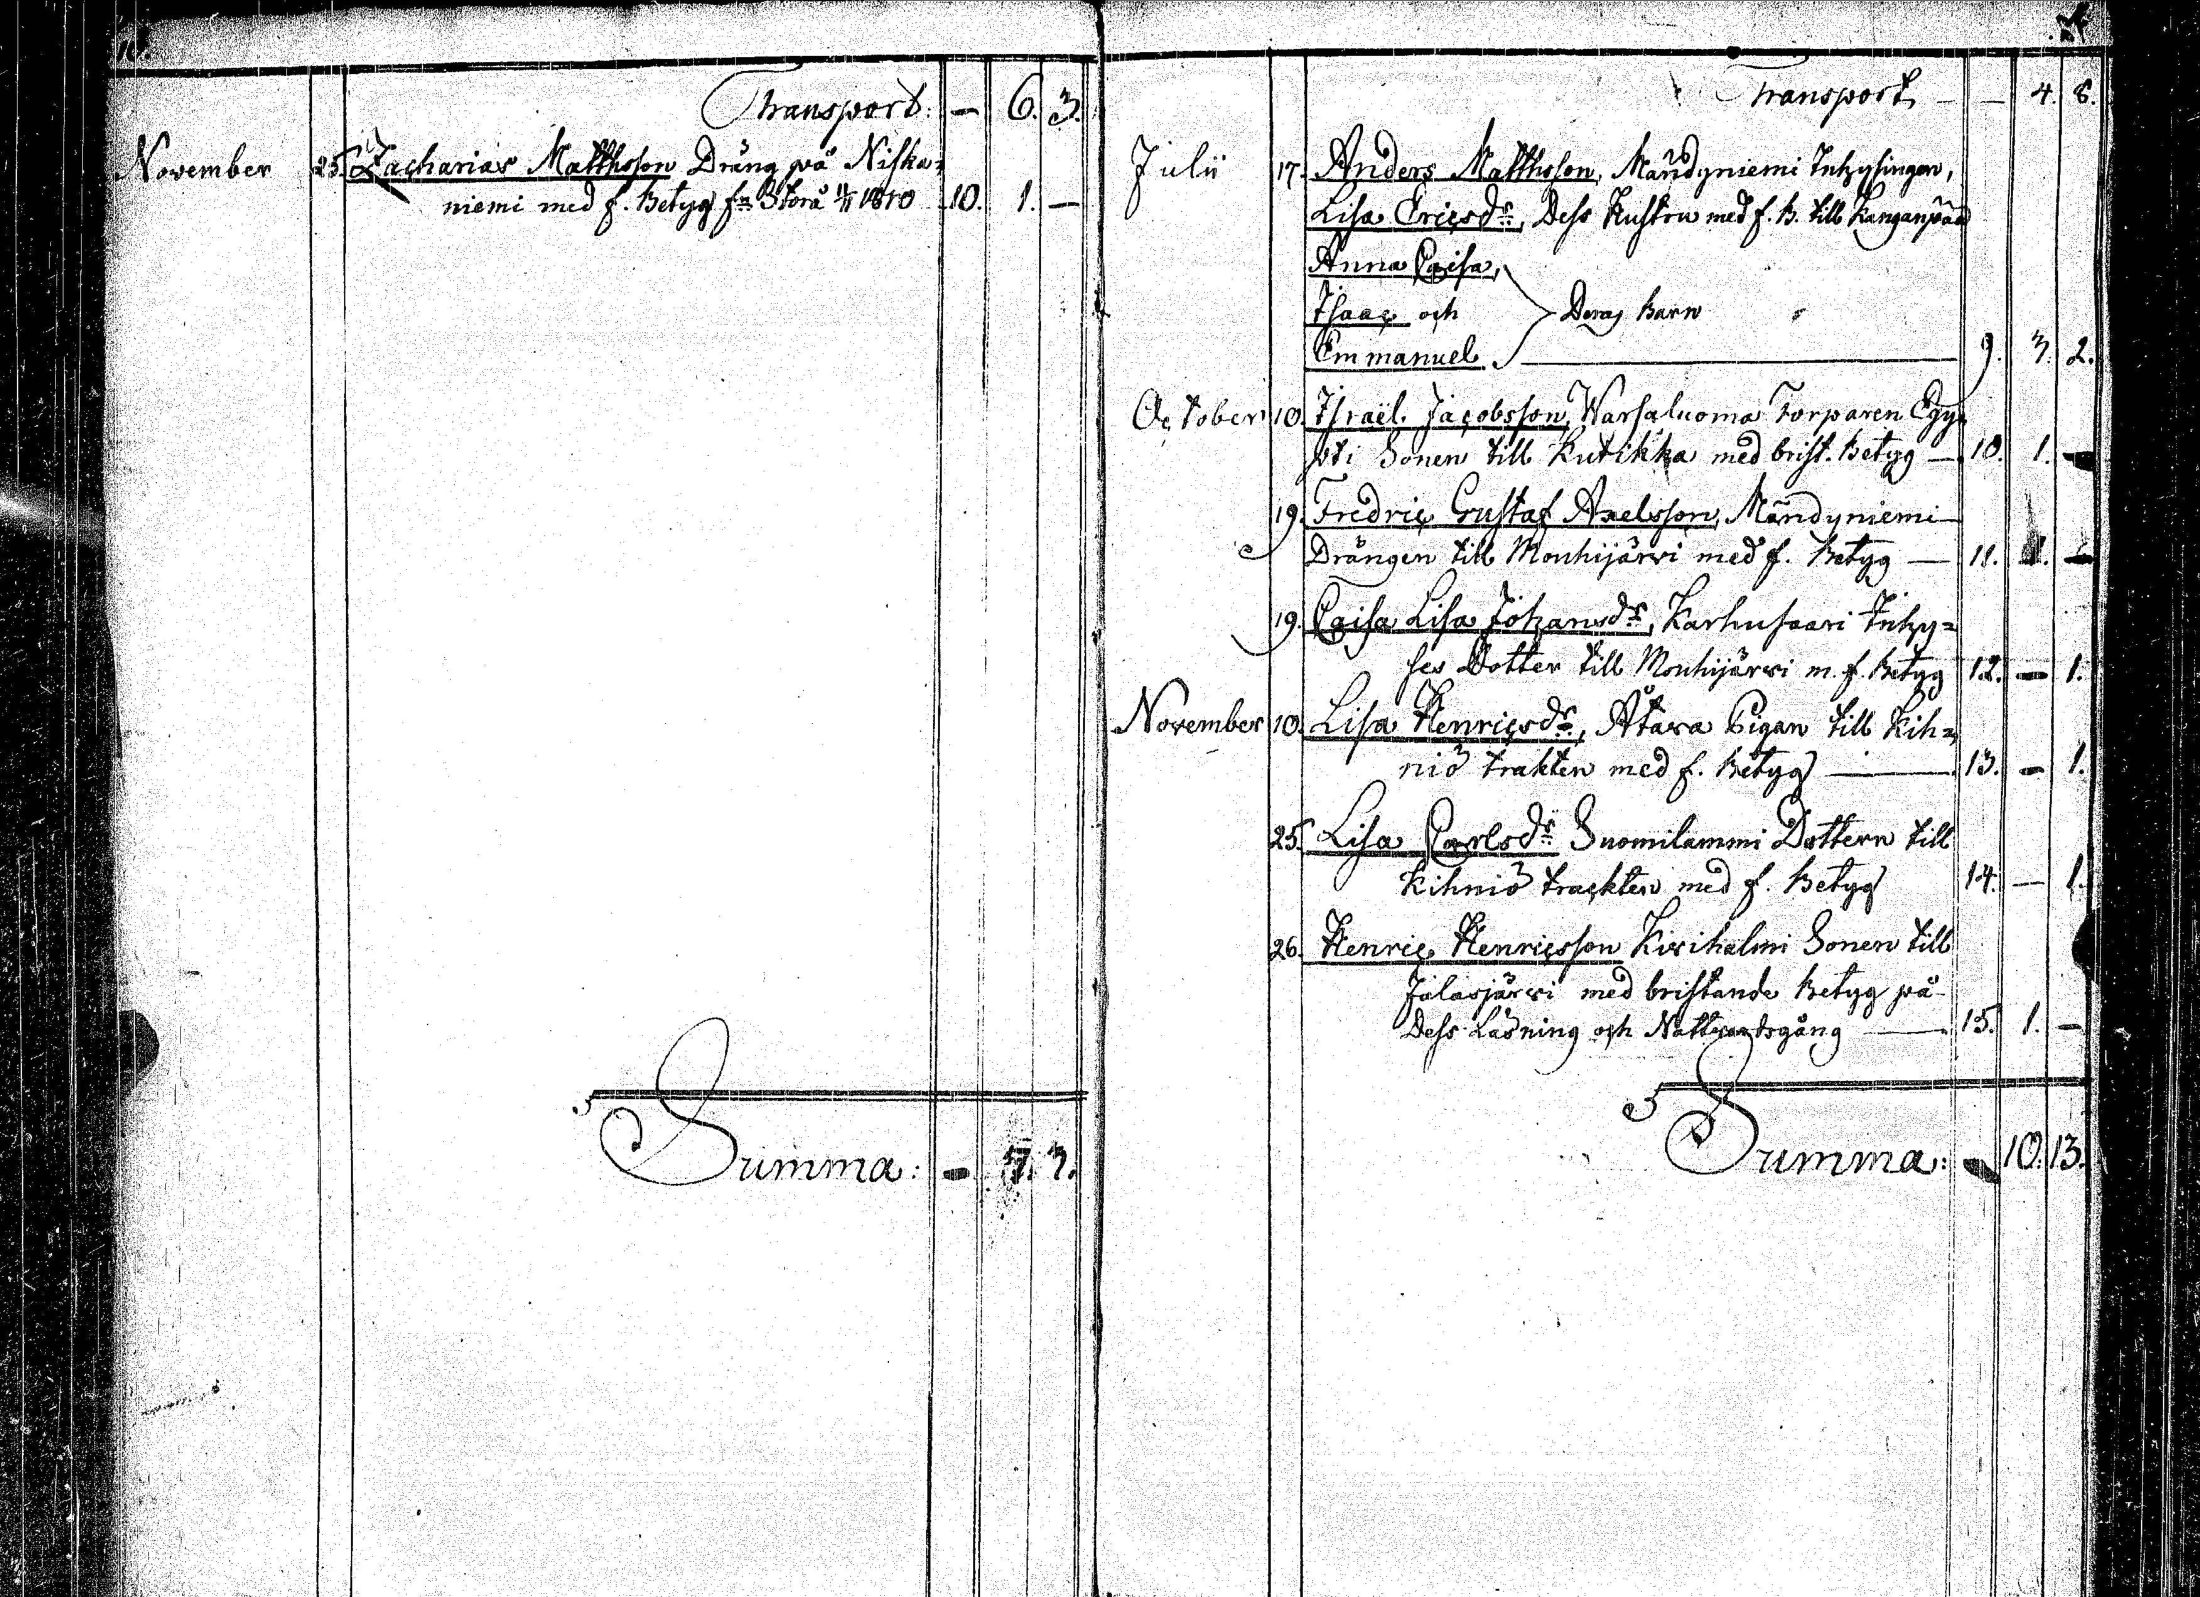 Transport: — 6. 3.
November 25. Zacharias Matthsson Dräng på Niska=
niemi med f. Betyg fn Storå 11/11 1810 10. 1. —
Summa: — 7. 3.
Transport — — 4. 8.
Julii 17. Anders Matthsson, Mändyniemi Inhysingen,
Lisa Ericsdr, Dess Hustru med f. B. till Kanganpää
Anna Caisa,
Isaac och Deras Barn
Emmanuel. 9. 3. 2.
October 10. Israël Jacobsson, Warsaluoma Torparen Egy-
pti Sonen till Kutikka med brist. Betyg — 10. 1. —
19. Fredric Gustaf Axelsson, Mändyniemi
Drängen till Mouhijärvi med f. Betyg — 11. 1. —
19. Caisa Lisa Johansdr, Karhusaari Inhy=
ses Dotter till Mouhijärvi m. f. Betyg 12. — 1.
November 10. Lisa Henricsdr, Ätava Pigan till Kih=
niö trakten med f. Betyg — 13. — 1.
25. Lisa Carlsdr Suomilammi Dottern till
Kihniö trackten med f. Betyg 14. — 1.
26. Henric Henricsson Kivihalmi Sonen till
Jalasjärvi med bristande Betyg på
Dess Läsning och Nattvardsgång — 15. 1. —
Summa: — 10. 13.